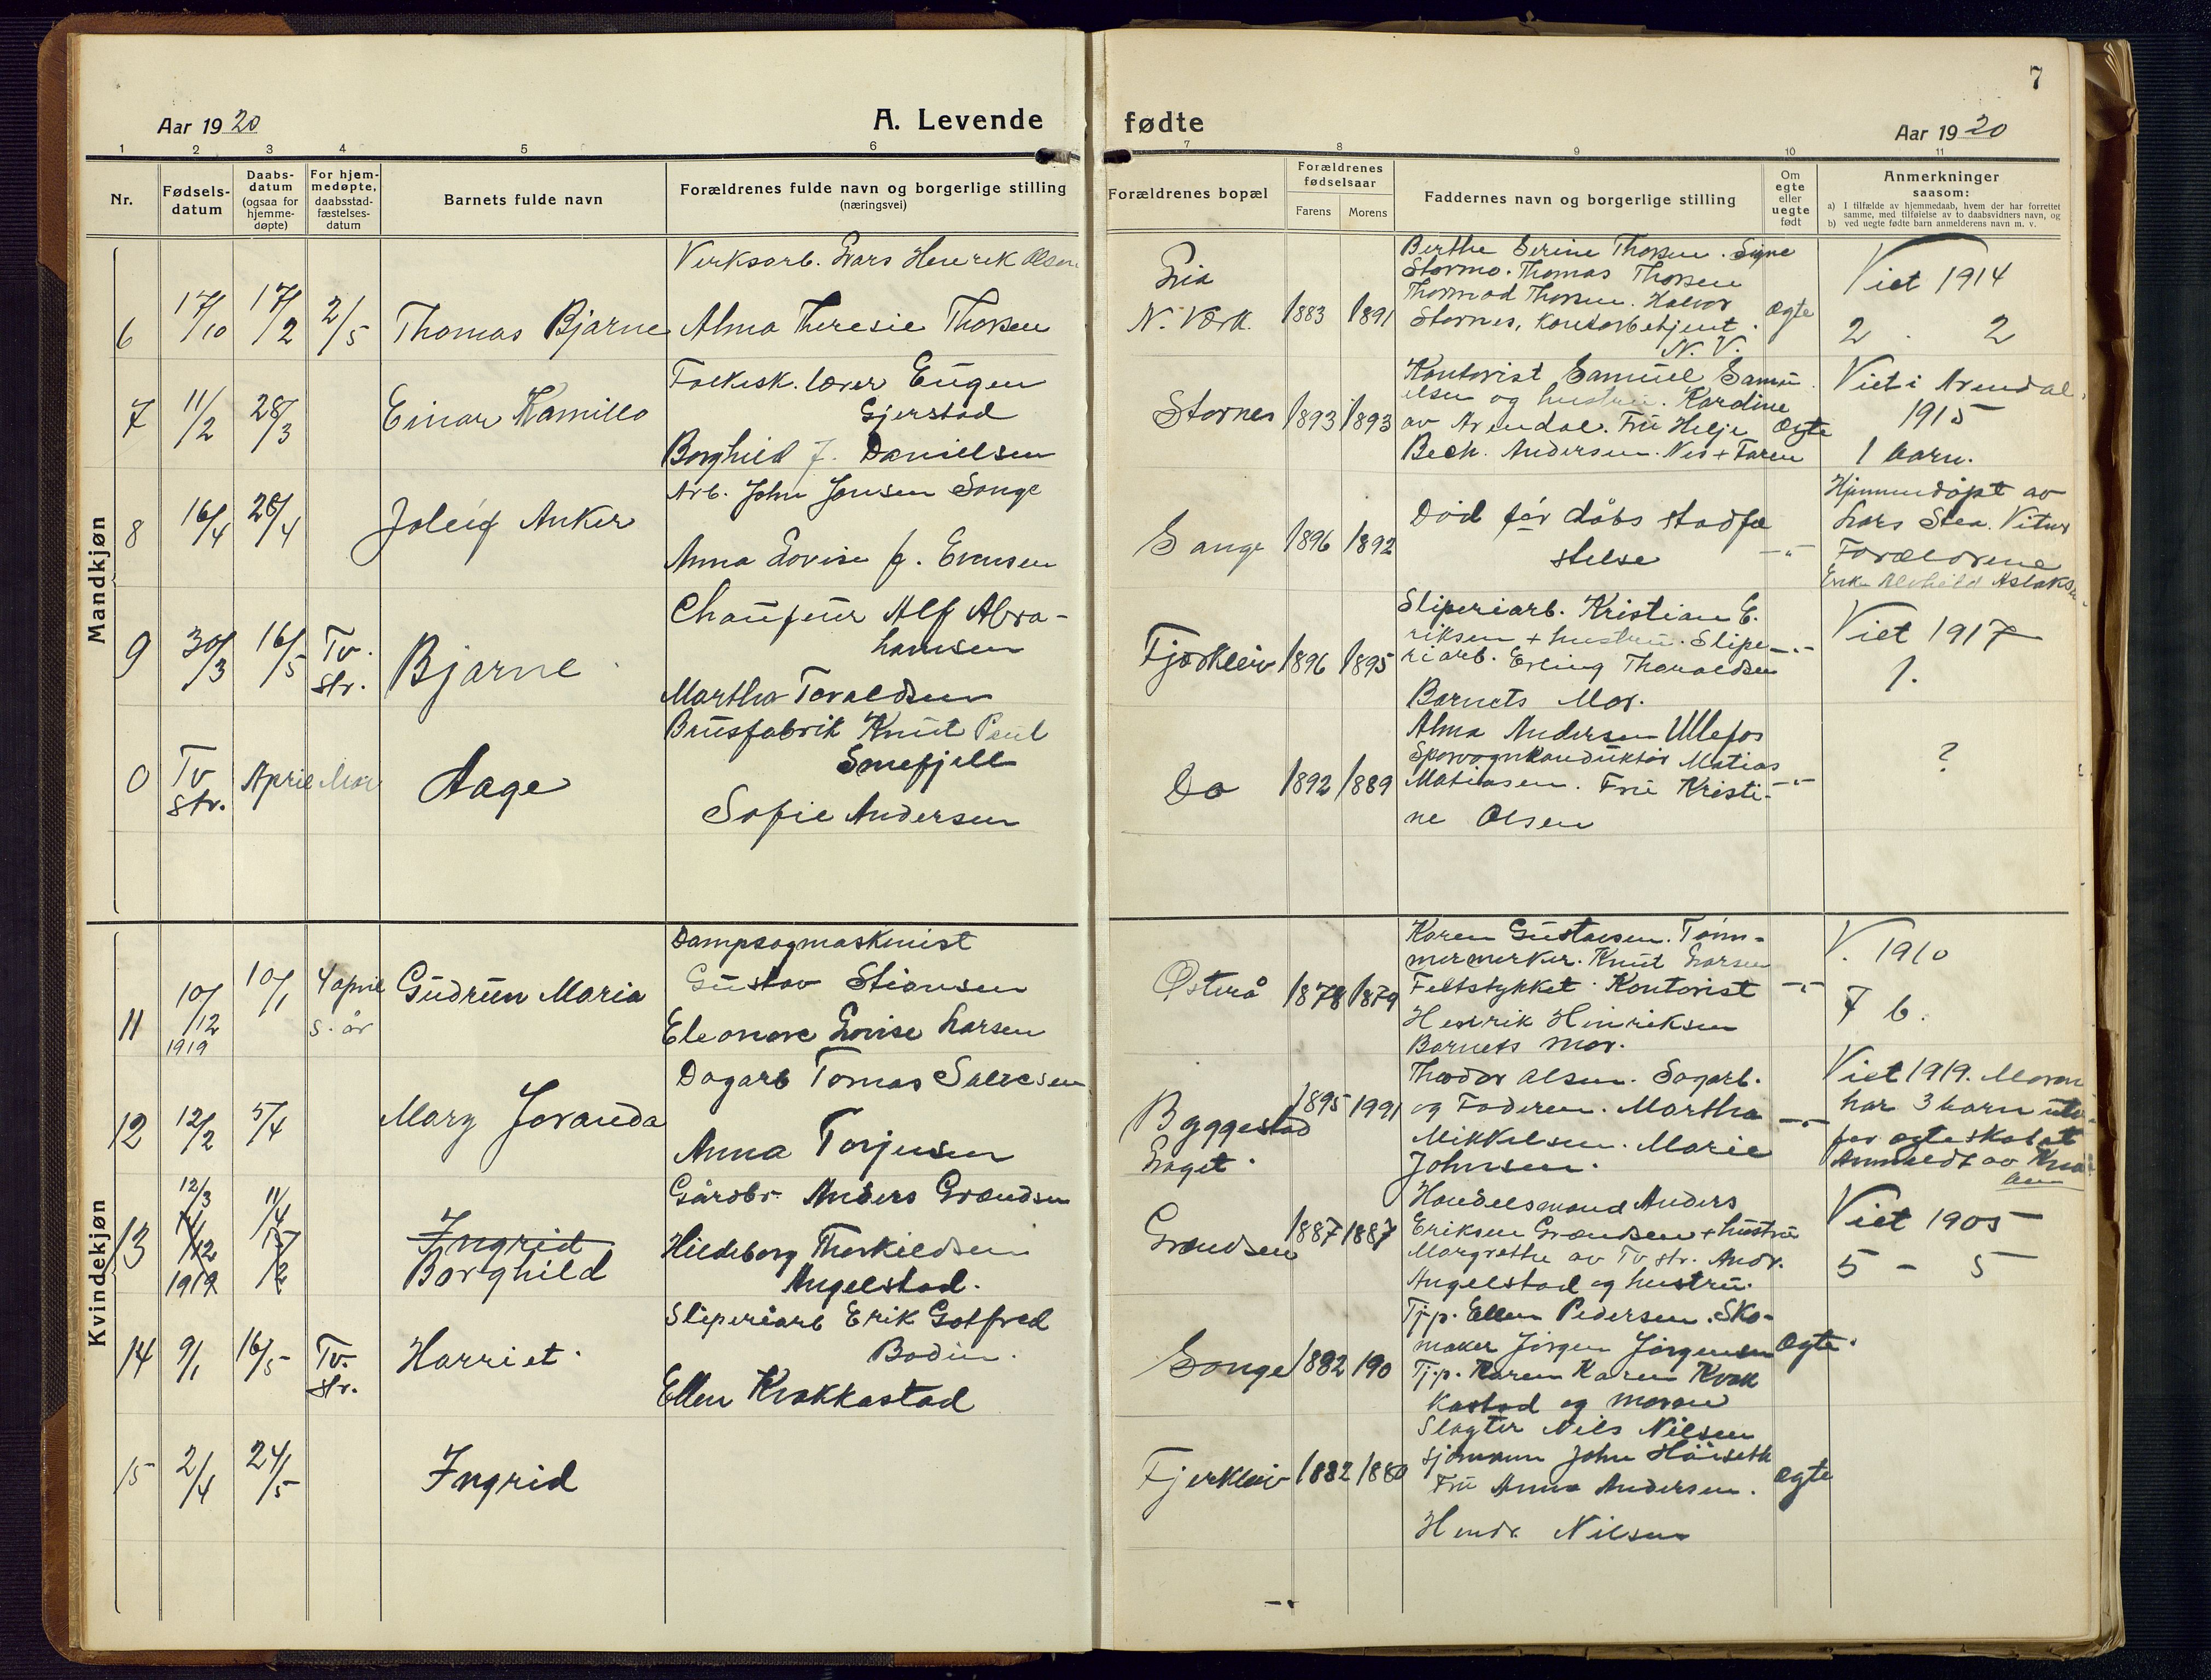 7
Aar 1920
A. Levende
fødte
Aar 1920
1 2 3 4 5 6 7 8 9 10 11
Nr.
Fødsels-
datum
Daabs-
datum
(ogsaa for
hjemme-
døpte)
For hjem-
medøpte,
daabsstad-
fæstelses-
datum
Barnets fulde navn
Forældrenes fulde navn og borgerlige stilling
(næringsvei)
Forældrenes bopæl
Forældrenes
fødselsaar
Farens Morens
Faddernes navn og borgerlige stilling
Om
egte
eller
uegte
født
Anmerkninger
saasom:
a) I tilfælde av hjemmedaab, hvem der har forrettet
samme, med tilføielse av to daabsvidners navn, og
b) ved uegte fødte barn anmelderens navn m. v.
Mandkjøn
6 17/10 17/2 2/5 Thomas Bjarne
Verksarb. Lars Henrek Olsen
Alma Theresie Thorsen
N. Værk. 1883 1891
Berthe Serine Thorsen. Signe
Stormo. Thomas Thorsen
Thormod Thorsen. Halvor
Stornes, Kontorbetjent.
N. V.
Ogte
Viet 1914
2 . 2
7 11/2 28/3 Einar Kamillo
Folkesk. lærer Eugen
Gjerstad
Borghild f. Danielsen
Stornes 1893 1893
Kontorist Samuel Samu
elsen og hustru. Kardine
av Arendal. Fru Helje
Bech. Andersen. Nes + Faren
Ogte
Viet i Arendal.
1915
1 barn.
8 16/4 28/4 Joleif Anker
Arb. John Jonsen Songe
Anna Lovise f. Evensen
Songe 1896 1892
Död för dåbs stadfæ
stelse
-"-
Hjemmedöpt av
Lars Stea. Vitner
Forældrene
Alvhild Aslaks
9 30/3 16/5 Tv.
str.
Bjarne
Chaufeur Alf Abra-
hamsen
Martha Toraldsen
Fjærkleiv 1896 1895
Sliperiarb. Kristian E.
riksen + hustru. Slipe-
riarb. Erling Thoraldsen
Barnets Mor.
-"-
Viet 1917
1.
0 Tv
str.
April Mor
Aage
Brusfabrik Knut Paul
Smefjell
Sofie Andersen
Do 1892 1889
Alma Andersen Ullefos
Sporvognkonduktör Matias
Matiasen. Fru Kristi-
ne Olsen
-"-
?
Kvindekjøn
11 10/12
1919
10/1 4 april
s. år
Gudrun Maria
Dampsagmaskinist
Gustav Stiansen
Eleonore Lovise Larsen
Østerå 1878 1879
Karen Gustavsen. Töm-
mermerker. Knut Larsen
Feltstykket. Kontorist
Henrik Hinriksen
Barnets mor.
-"-
V. 1910
7 b.
12 12/2 5/4 Mary Jovanda
Dagarb Tomas Salvesen
Anna Torjusen
Byggestad
Laget. 1895 1991
Theodor Olsen. Sagarb.
og Faderen. Martha
Mikkelsen. Marie
Johnsen.
-"-
Viet 1919. Moren
har 3 barn uten
for ægteskabet
Anmeldt av
13 12/3
11/12
1919
11/4
15/2
Ingrid
Borghild
Gårdbr. Anders Grændsen
Hildeborg Thorkildsen
Angelstad.
Grændsen 1887 1887
Handelsmand Anders
Eriksen Grændsen + hustru
Margrethe av Tv. str. Andr.
Angelstad og hustru.
Viet 1905
5 - 5
14 9/1 16/5 Tv.
str.
Harriet.
Sliperiarb Erik Gotfred
Bodin.
Ellen Kvakkastad
Songe 1882 190
Tj.p. Ellen Pedersen. Sko-
maker Jörgen Jörgensen
Tj.p. Karen Karen Kvak
kastad og moren
Ogte.
15 2/4 24/5 Ingrid
Fjerkleiv 1882 1880
Slagter Nils Nilsen
Sjömann John Höiseth
Fru Anna Andersen.
Nilsen
ogte